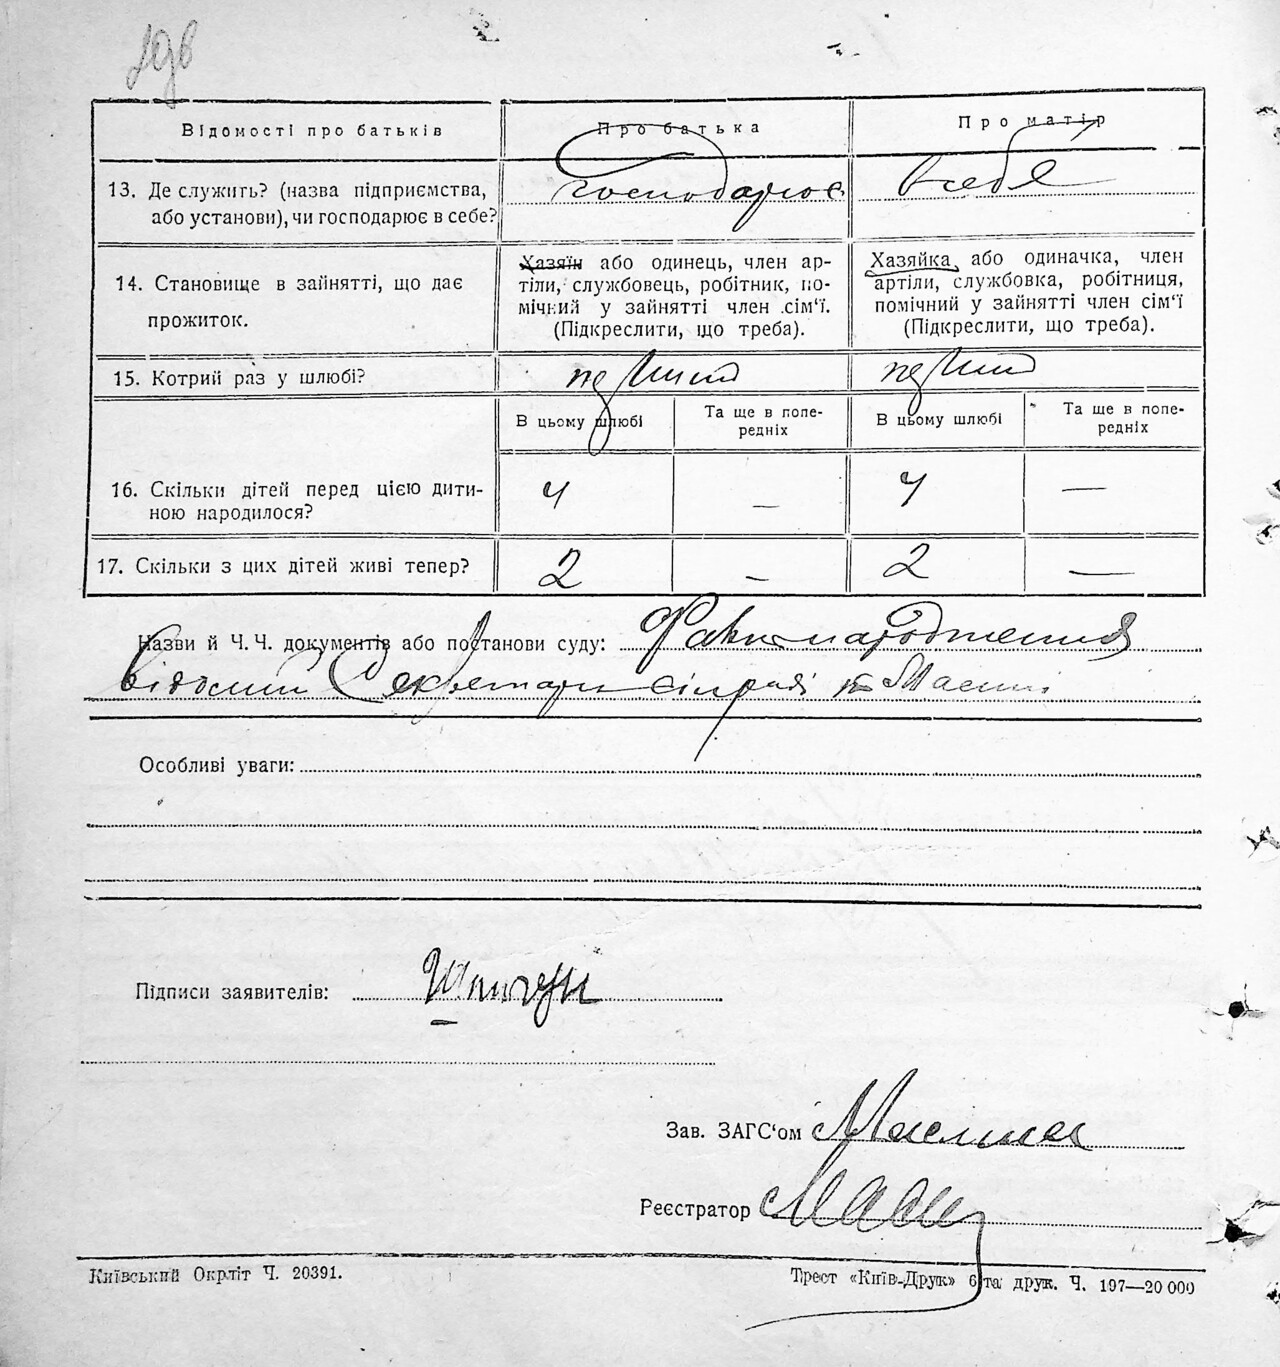 Відомості про батьків
Про батька
Про матір
13. Де служить? (назва підприємства,
або установи), чи господарює в себе?
господарює
в себе
14. Становище в зайнятті, що дає
прожиток.
Хазяїн або одинець, член ар-
тіли, службовець, робітник, по-
мічний у зайнятті член сім‘ї.
(Підкреслити, що треба).
Хазяйка або одиначка, член
артіли, службовка, робітниця,
помічний у зайнятті член сім‘ї
(Підкреслити, що треба).
15. Котрий раз у шлюбі?
В цьому шлюбі
Та ще в попе-
редніх
В цьому шлюбі
Та ще в попе-
редніх
16. Скільки дітей перед цією дити-
ною народилося?
4
—
4
—
17. Скільки з цих дітей живі тепер?
2
—
2
—
Назви й Ч. Ч. документів або постанови суду: Факт народження
відомий Секретарю сілради
Особливі уваги:
Підписи заявителів:
Зав. ЗАГС‘ом
Реєстратор
Київський Окрліт Ч. 20391.
Трест «Київ-Друк» 6 та друк. Ч. 197—20 000